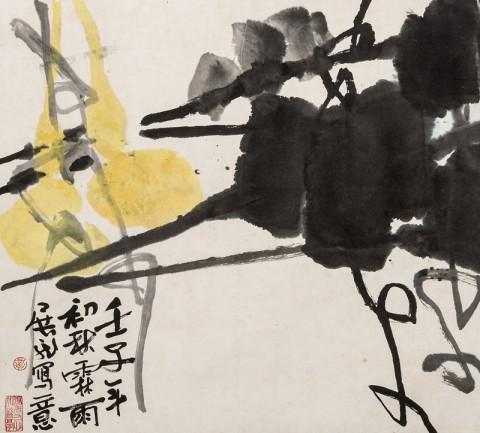 壬子年
初秋霖雨
寫意